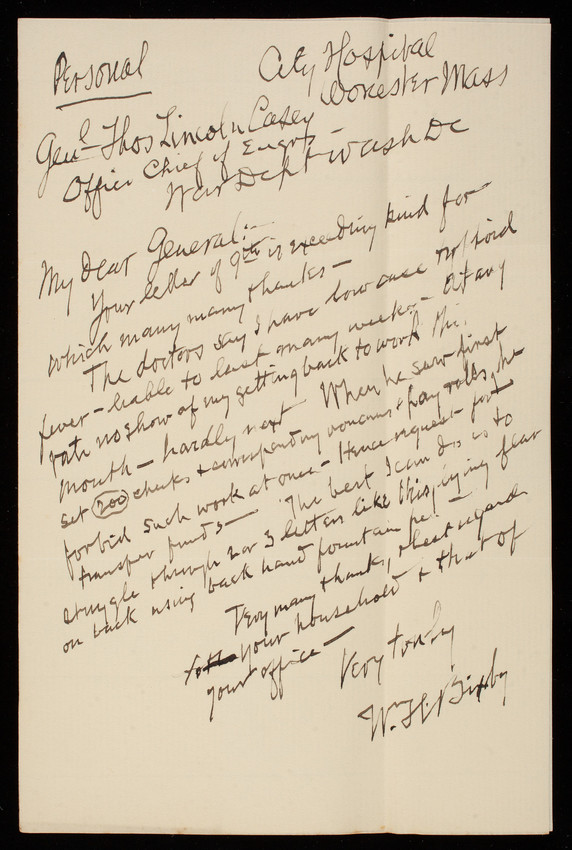 Personal
City Hospital
Worcester Mass
Genl Thos Lincoln Casey
Office Chief of Engrs -
War Dept Wash DC
My Dear General:-
Your letter of 9th is exceeding kind for
which many many thanks -
The doctors say I have low case typhoid
fever - liable to last many weeks - At any
rate no show of my getting back to work this
month - hardly next When he saw first
set (200) checks & corresponding vouchers & pay rolls, he
forbid such work at once - Hence request for
transfer funds - The best I can do is to
struggle through 2 or 3 letters like this, lying flat
on back using back hand fountain pen -
Very many thanks, & best regards
to your household & that of
your office -
Very truly
W. H. Bixby